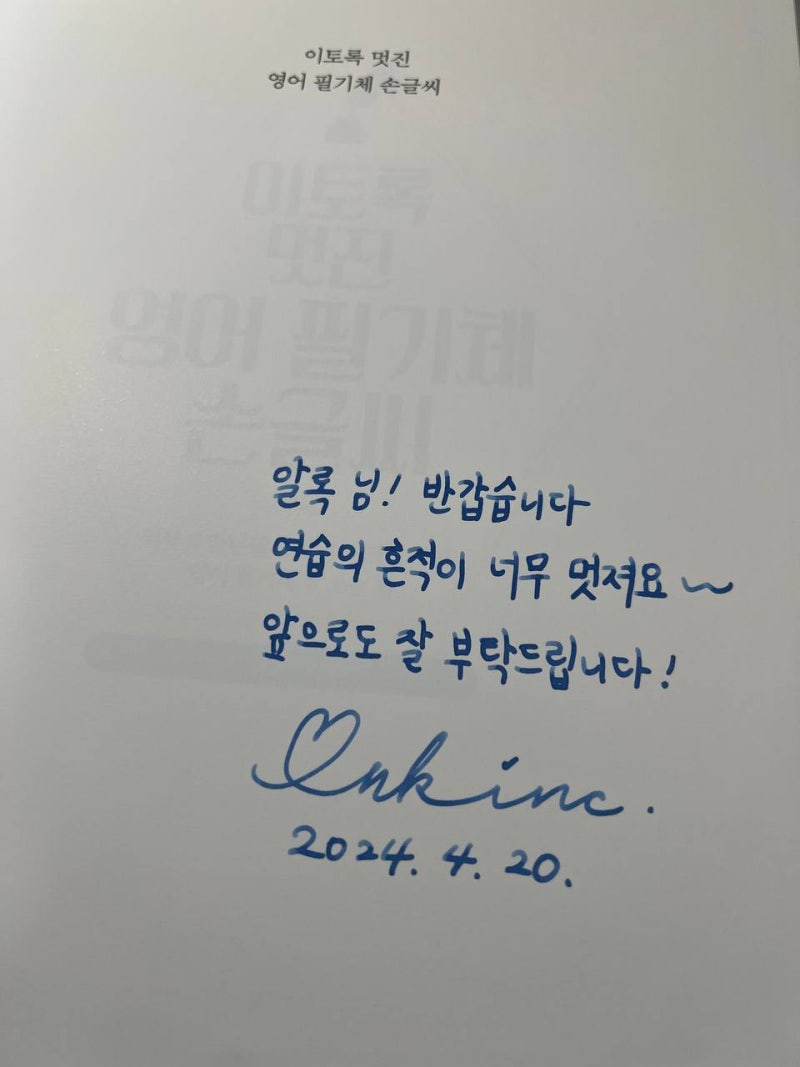 이토록 멋진
영어 필기체 손글씨
이토록
멋진
영어 필기체
손글씨
알록 님! 반갑습니다
연습의 흔적이 너무 멋져요~
앞으로도 잘 부탁드립니다!
Onk inc.
2024. 4. 20.